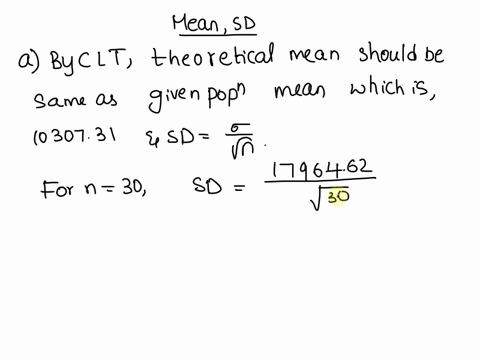 Mean, SD
a) By CLT, theoretical mean should be
same as given popⁿ mean which is,
10307.31 & SD = σ/√n.
For n = 30, SD = 17964.62/√30